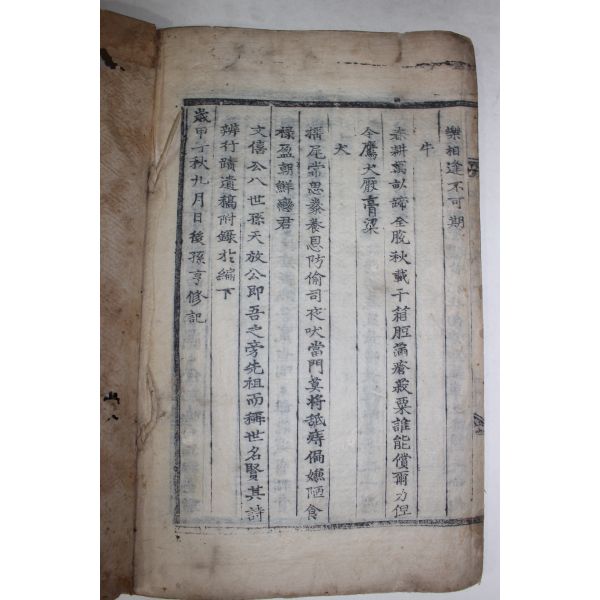 樂相逢不可期
牛
春耕萬畝蹄全脫秋載千箱腔滿瘡菽粟誰能償爾力但
令鷹犬厭膏粱
犬
搖尾常思豢養恩防偷司夜吠當門莫將舐痔偏嫌陋食
祿盈朝鮮戀君
文僖公八世孫天放公即吾之旁先祖而稱世名賢其詩
辨行蹟遺稿附錄於編下
歲甲丁秋九月日後孫亨修記